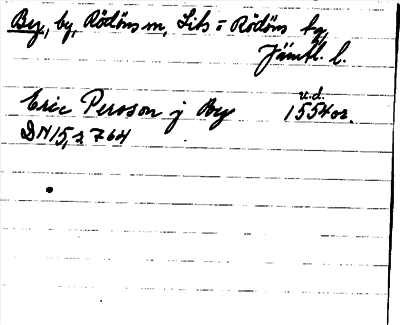 By, by, Rödöns sn, Lits o Rödöns tg,
Jämtl. l.
Eric Persson j By u.d. 1554 or.
DN 15, s 764